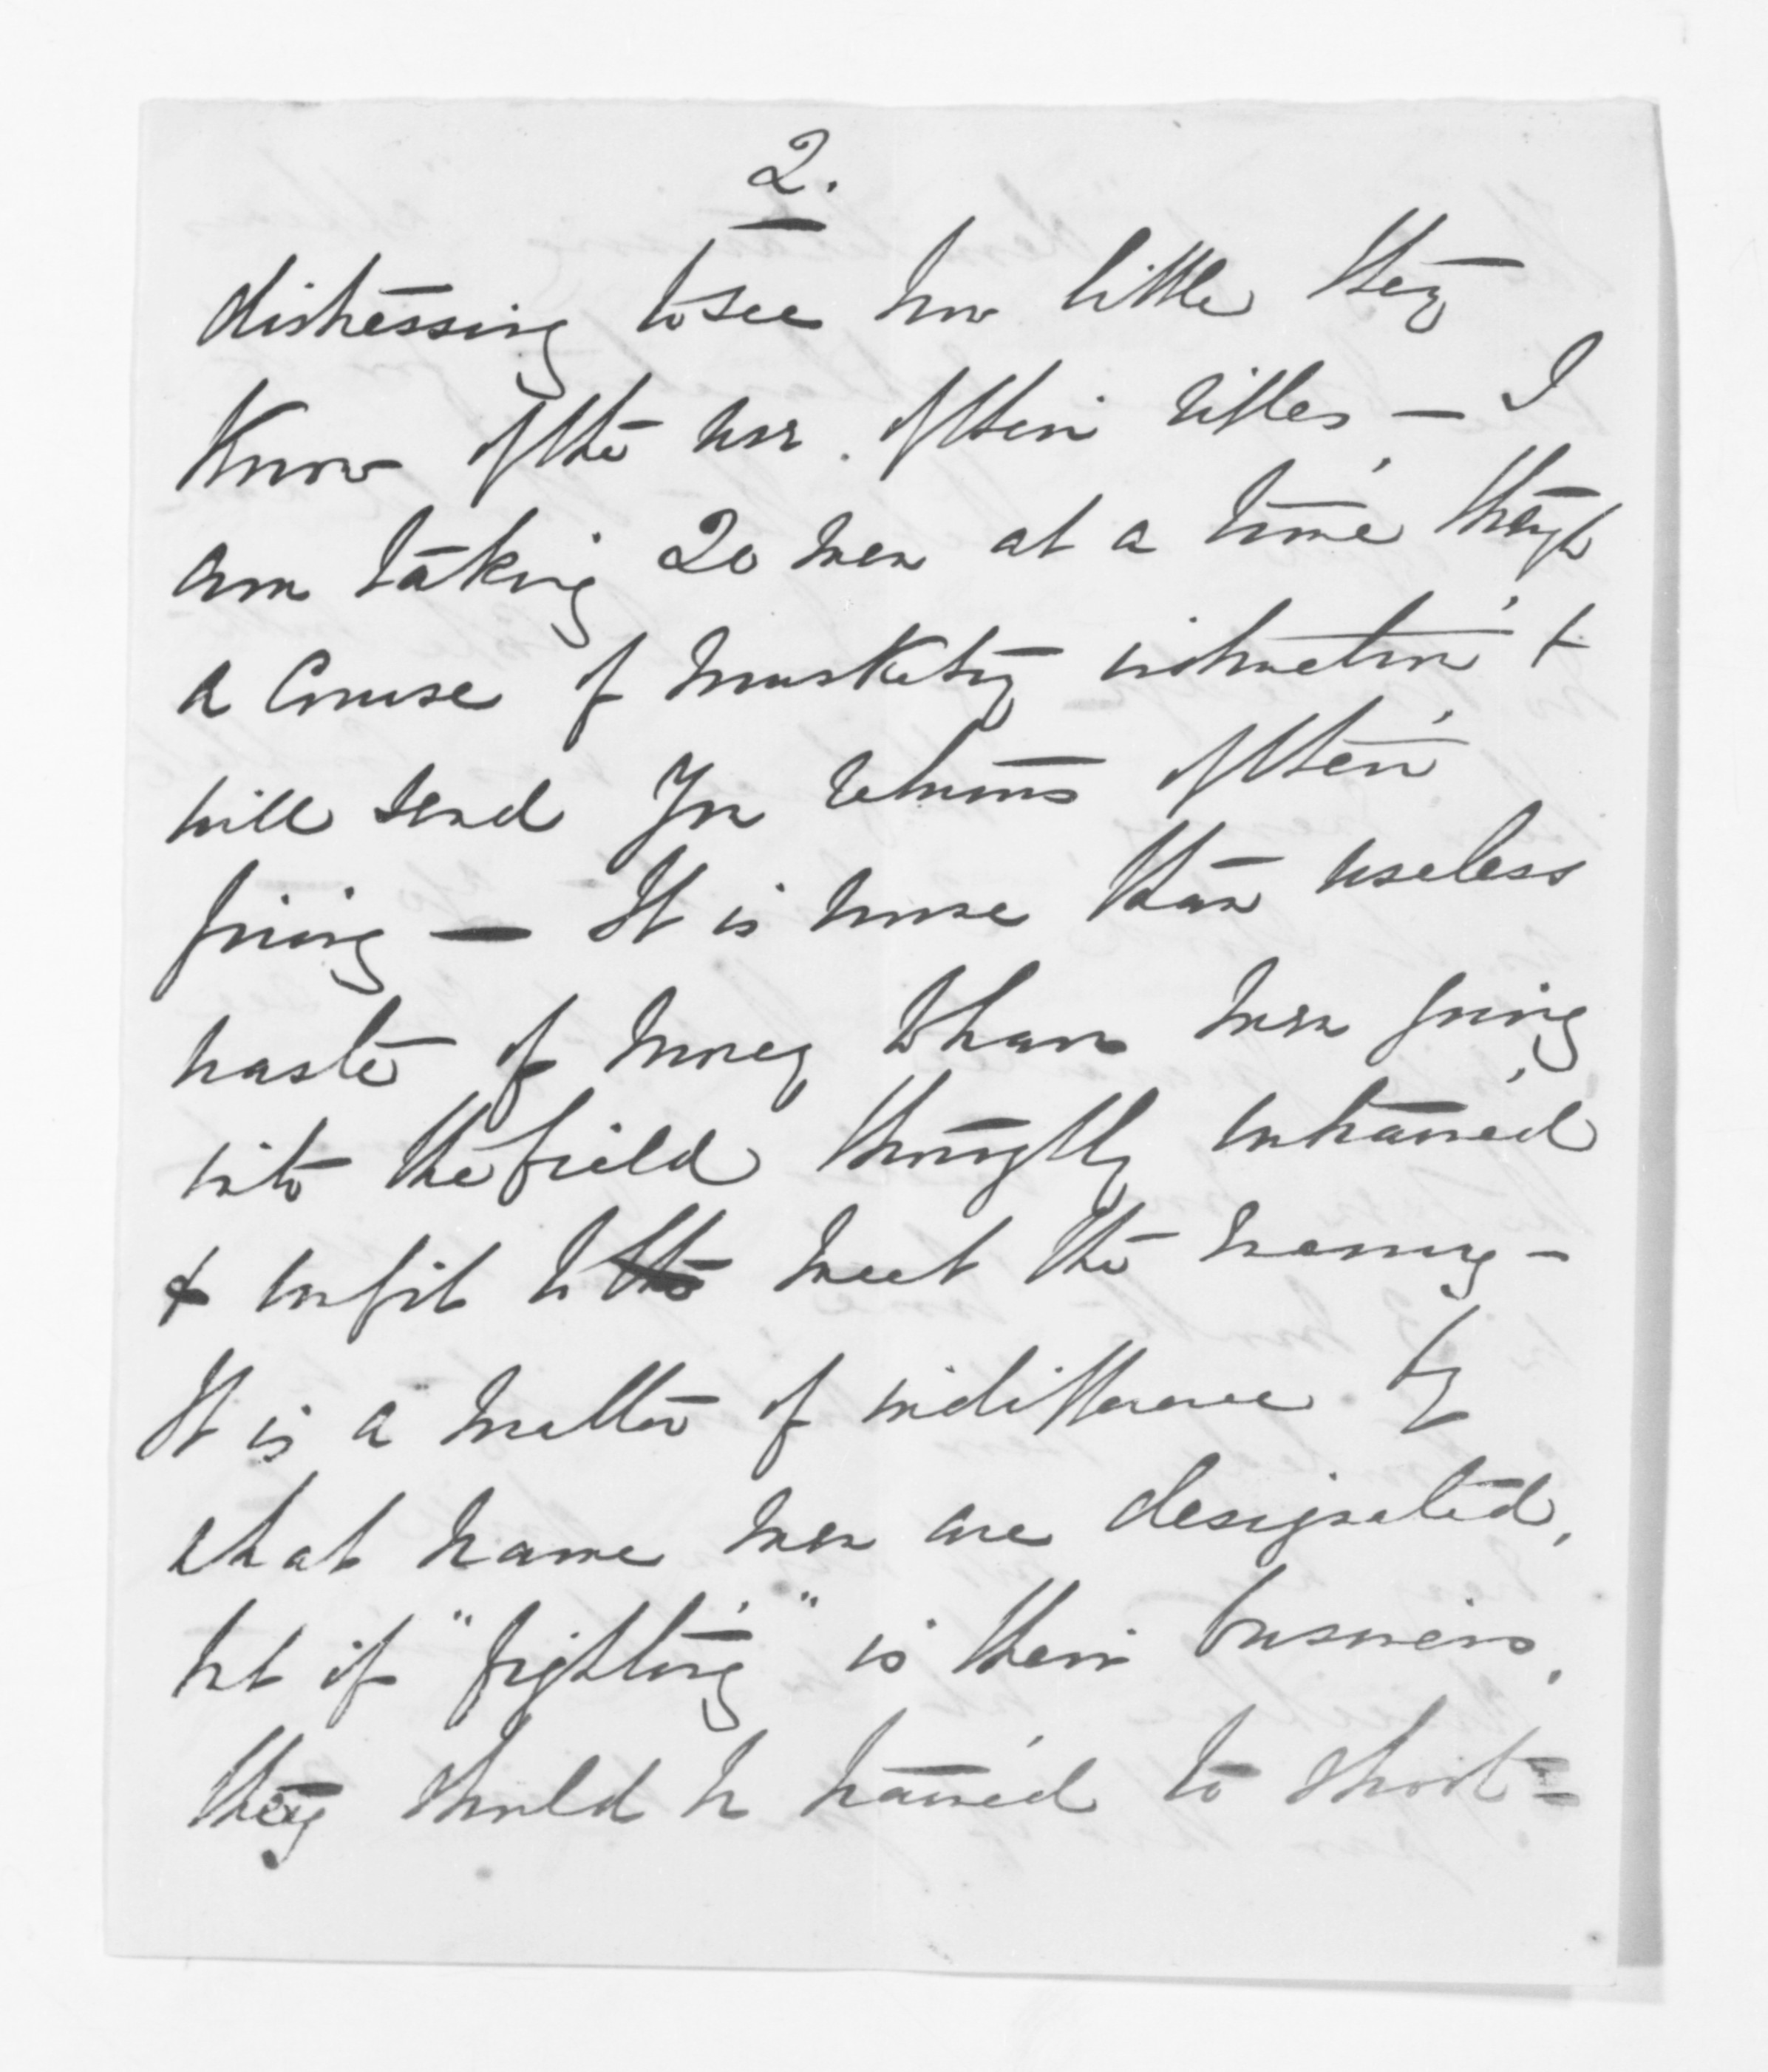 2.
distressing to see how little they
know of the use of their rifles, — I
am taking 20 men at a time through
a Course of musketry instruction &
will send you returns of their
firing — It is worse than useless
waste of money to have men going
into the field thoroughly untrained
& unfit to the meet the enemy —
It is a matter of indifference by
what name men are designated,
but if "fighting" is their business,
they should be trained to shoot —